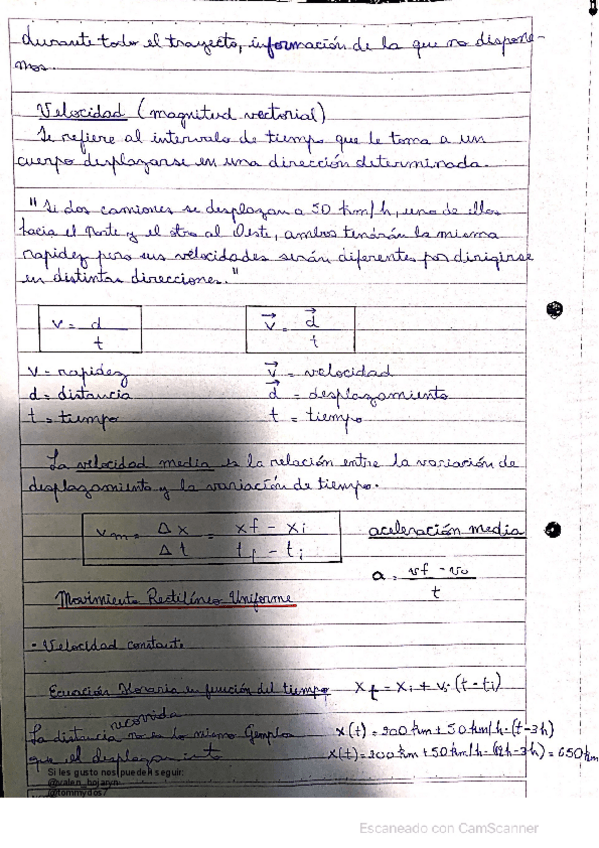 durante todo el trayecto, información de la que no dispone-
mos.
Velocidad (magnitud vectorial)
Se refiere al intervalo de tiempo que le toma a un
cuerpo desplazarse en una dirección determinada.
"Si dos camiones se desplazan a 50 km/h, uno de ellos
hacia el Norte y el otro al Oeste, ambos tendrán la misma
rapidez pero sus velocidades serán diferentes por dirigirse
en distintas direcciones."
v = d / t
v⃗ = d⃗ / t
v = rapidez
v⃗ = velocidad
d = distancia
d⃗ = desplazamiento
t = tiempo
t = tiempo
La velocidad media es la relación entre la variación de
desplazamiento y la variación de tiempo.
vm = Δx / Δt = xf - xi / tf - ti
aceleración media
a = vf - vo / t
Movimiento Rectilíneo Uniforme
- Velocidad constante
Ecuación Horaria en función del tiempo
xf = xi + v.(t - ti)
La distancia recorrida no es lo mismo
que el desplazamiento
Ejemplo
x(t) = 200 km + 50 km/h · (t - 3h)
x(t) = 200 km + 50 km/h · (12h - 3h) = 650 km
Si les gusto nos pueden seguir:
@valen_bojaryn
@tommydos7
Escaneado con CamScanner